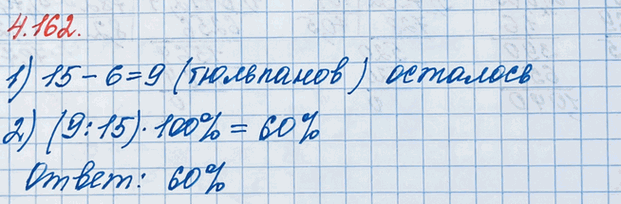 4.162.
1) 15 - 6 = 9 (тюльпанов) осталось
2) (9:15) · 100% = 60%
Ответ: 60%